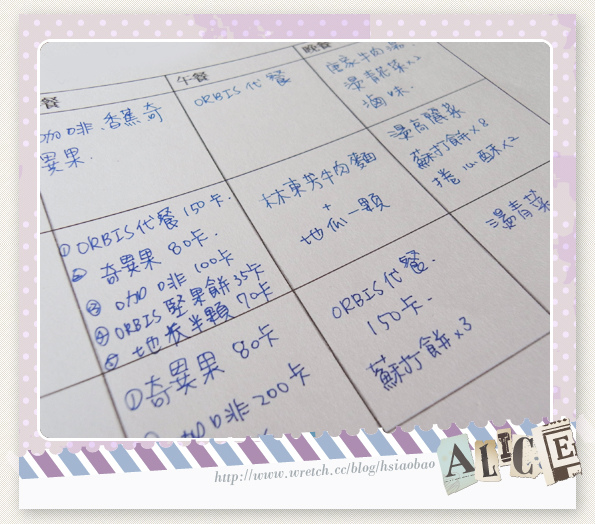 餐
午餐
晚餐
咖啡、香蕉奇
異果.
ORBIS代餐
康家牛肉麵
燙青菜x2
滷味.
①ORBIS代餐150卡.
② 奇異果 80卡.
③ 咖啡 100卡
④ORBIS堅果餅35卡
⑤ 地瓜半顆 70卡
林東芳牛肉麵
+
地瓜一顆
燙高麗菜
蘇打餅x8
捲心酥x2
①奇異果 80卡
咖啡200卡
ORBIS代餐.
150卡.
蘇打餅x3
燙青菜
http://www.wretch.cc/blog/hsiaobao
ALICE